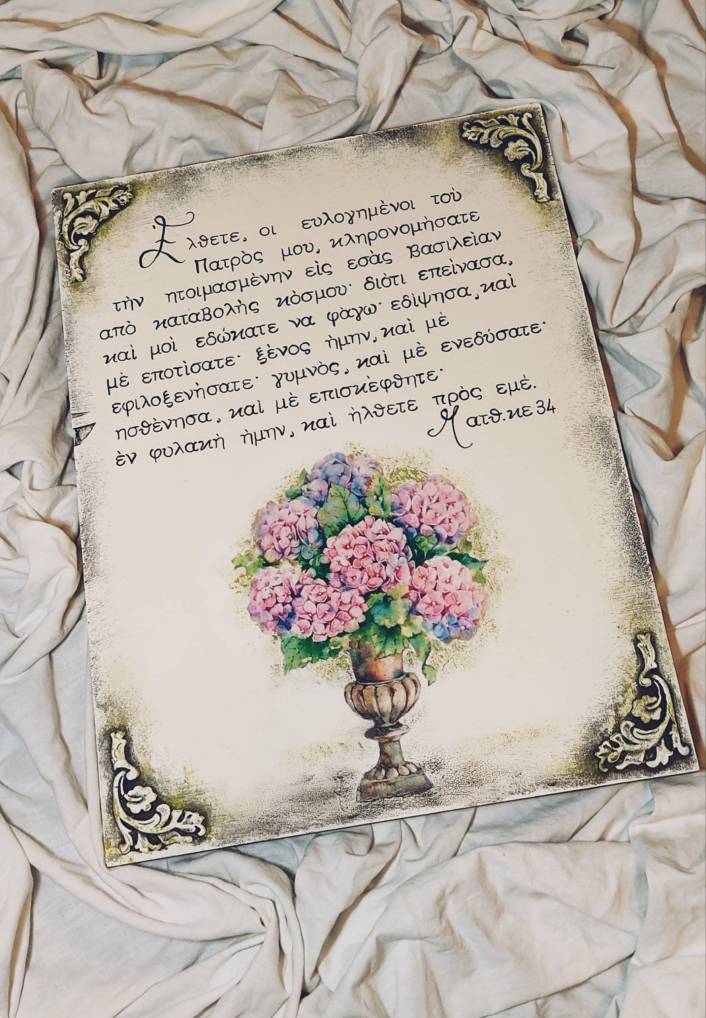 Ἐλθετε, οι ευλογημένοι τοὺ
Πατρὸς μου, κληρονομὴσατε
τὴν ητοιμασμὲνην εὶς εσὰς Βασιλεὶαν
απὸ καταβολὴς κὸσμου· διὸτι επεὶνασα,
καὶ μοὶ εδὼκατε να φὰγω· εδὶψησα, καὶ
μὲ εποτὶσατε· ξὲνος ὴμην, καὶ μὲ
εφιλοξενὴσατε· γυμνὸς, καὶ μὲ ενεδὺσατε·
ησθὲνησα, καὶ μὲ επισκὲφθητε·
ὲν φυλακὴ ὴμην, καὶ ὴλθετε πρὸς εμὲ.
Ματθ. κε 34